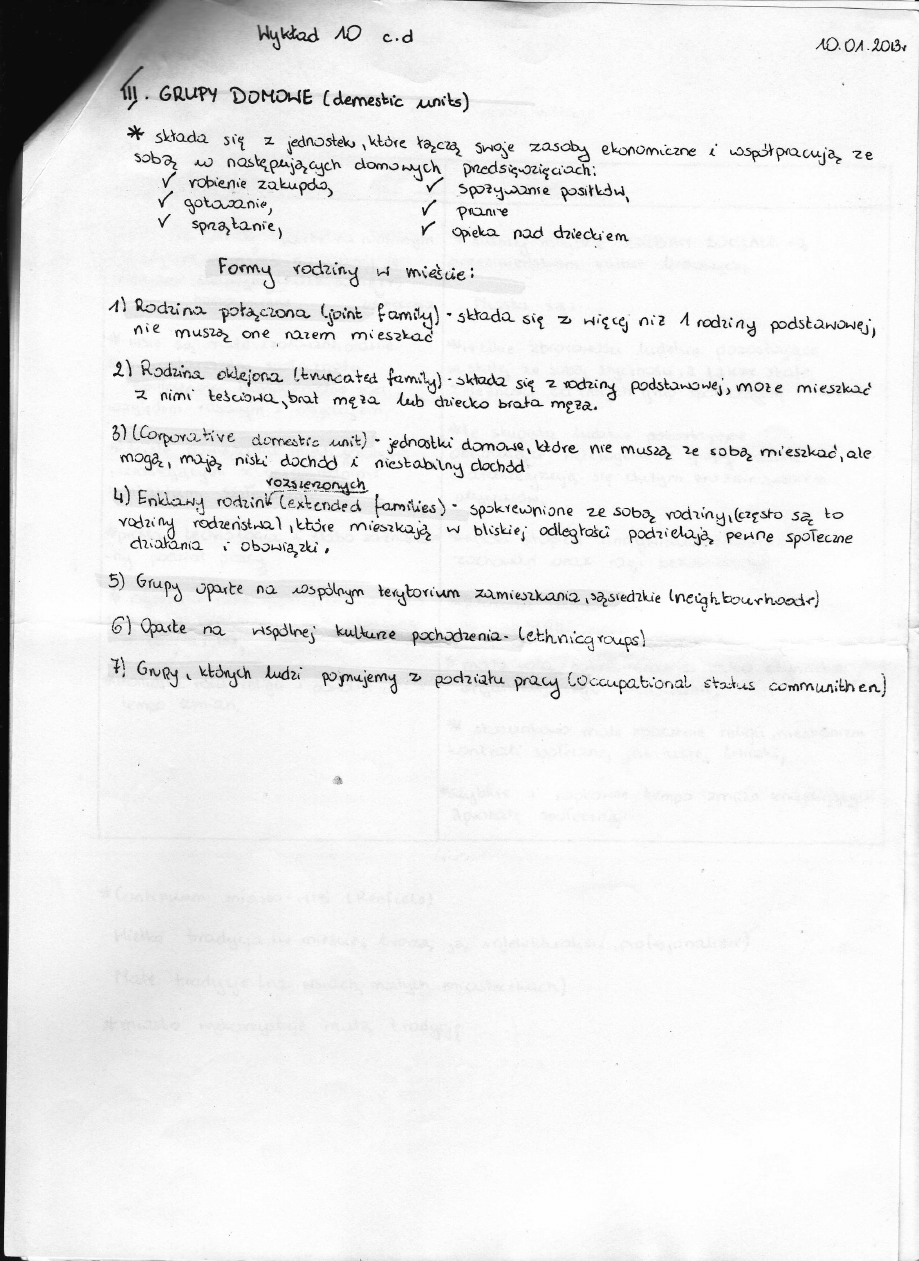 Wykład 10 c.d
10.01.2013r
III. GRUPY DOMOWE (demestic units)
* składa się z jednostek, które łączą swoje zasoby ekonomiczne i współpracują ze
sobą w następujących domowych przedsięwzięciach:
✓ robienie zakupów, ✓ spożywanie posiłków,
✓ gotowanie, ✓ pranie
✓ sprzątanie, ✓ opieka nad dzieckiem
Formy rodziny w mieście:
1) Rodzina połączona (joint family) - składa się z więcej niż 1 rodziny podstawowej,
nie muszą one razem mieszkać
2) Rodzina oklejona (truncated family) - składa się z rodziny podstawowej, może mieszkać
z nimi teściowa, brat męża lub dziecko brata męża.
3) (Corporative domestic unit) - jednostki domowe, które nie muszą ze sobą mieszkać, ale
mogą, mają niski dochód i niestabilny dochód
rozsierzonych
4) Enklawy rodzin (extended families) - spokrewnione ze sobą rodziny, (często są to
rodziny rodzeństwa), które mieszkają w bliskiej odległości podzielają pewne społeczne
działania i obowiązki.
5) Grupy oparte na wspólnym terytorium zamieszkania, sąsiedzkie (neighbourhoodr)
6) Oparte na wspólnej kulturze pochodzenia - (ethnicgroups)
7) Grupy, których ludzi pojmujemy z podziału pracy (occupational status communithen)